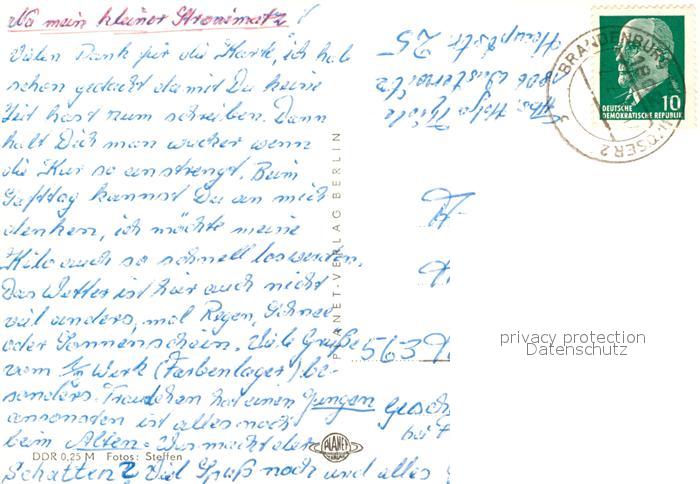 Na mein kleiner Stronimatz!
Vielen Dank für die Karte, ich hab
schon gedacht damit Du keine
Zeit hast zum schreiben. Dann
halt Dich man wacker wenn
die Kur so anstrengt. Beim
Safttag kannst Du an mich
denken, ich möchte meine
Kilo auch so schnell loswerden.
Das Wetter ist hier auch nicht
viel anders, mal Regen, Schnee
oder Sonnenschein. Viele Grüße
vom Werk (Farbenlager) be-
sonders. Traudchen hat einen Jungen
ansonsten ist alles noch
beim Alten. Was macht der
Schatten? Viel Spaß noch und alles
gesch
bei
PLANET-VERLAG BERLIN
DDR 0,25 M Fotos: Steffen
PLANET
VERLAG
Abs. Helga
Hauptstr. 25
563
BRANDENBURG
DEUTSCHE
DEMOKRATISCHE REPUBLIK
10
privacy protection
Datenschutz